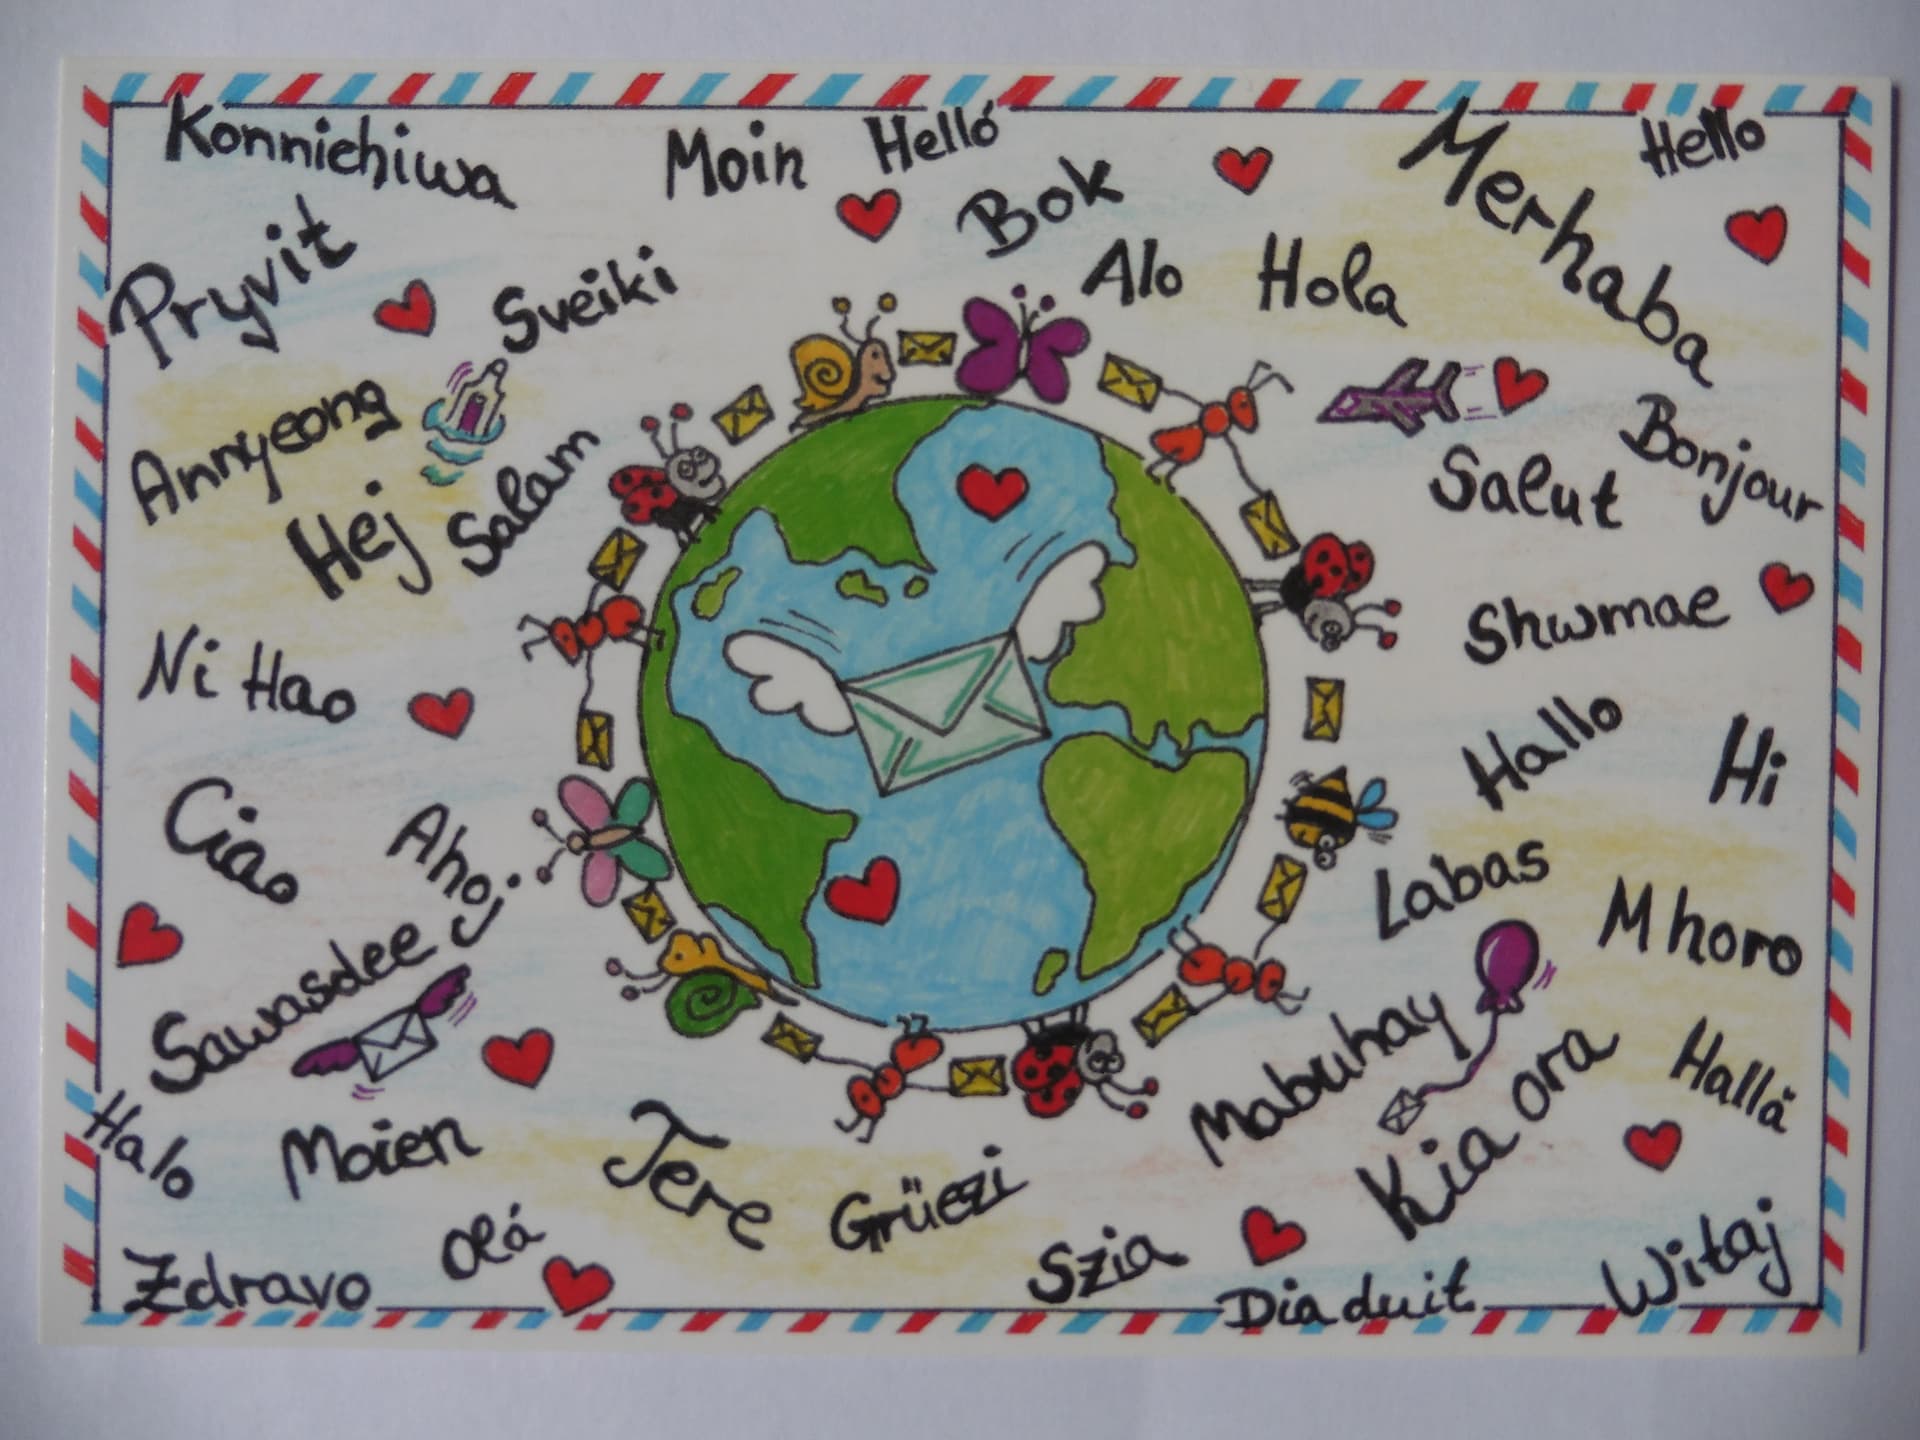 Konnichiwa
Moin
Helló
Bok
Merhaba
Hello
Pryvit
Sveiki
Alo
Hola
Annyeong
Hej
Salam
Bonjour
Salut
Ni Hao
Shwmae
Hallo
Hi
Ciao
Ahoj
Labas
Mhoro
Sawasdee
Mabuhay
Kia ora
Hallå
Halo
Moien
Tere
Grüezi
Olá
Szia
Zdravo
Dia duit
Witaj